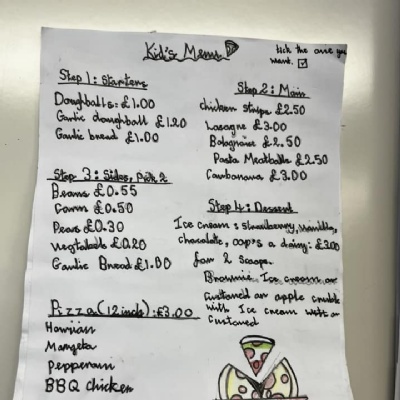 Kid's Menu
tick the one you want. ☑
Step 1: Starters
Doughballs: £1.00
Garlic doughball £1.20
Garlic bread £1.00
Step 2: Main
chicken strips £2.50
Lasagne £3.00
Bolognaise £2.50
Pasta Meatballs £2.50
Carbonara £3.00
Step 3: Sides, Pick 2
Beans £0.55
Corn £0.50
Peas £0.30
vegtabals £0.20
Garlic Bread £1.00
Step 4: Dessert
Ice cream: strawberry, vanilla,
chocolate, oop's a daisy: £3.00
for 2 scoops.
Brownie, Ice cream or
custared an apple crumble
with Ice cream with or
custared
Pizza (12 inch): £3.00
Hawiian
Margeta
Pepperoni
BBQ chicken